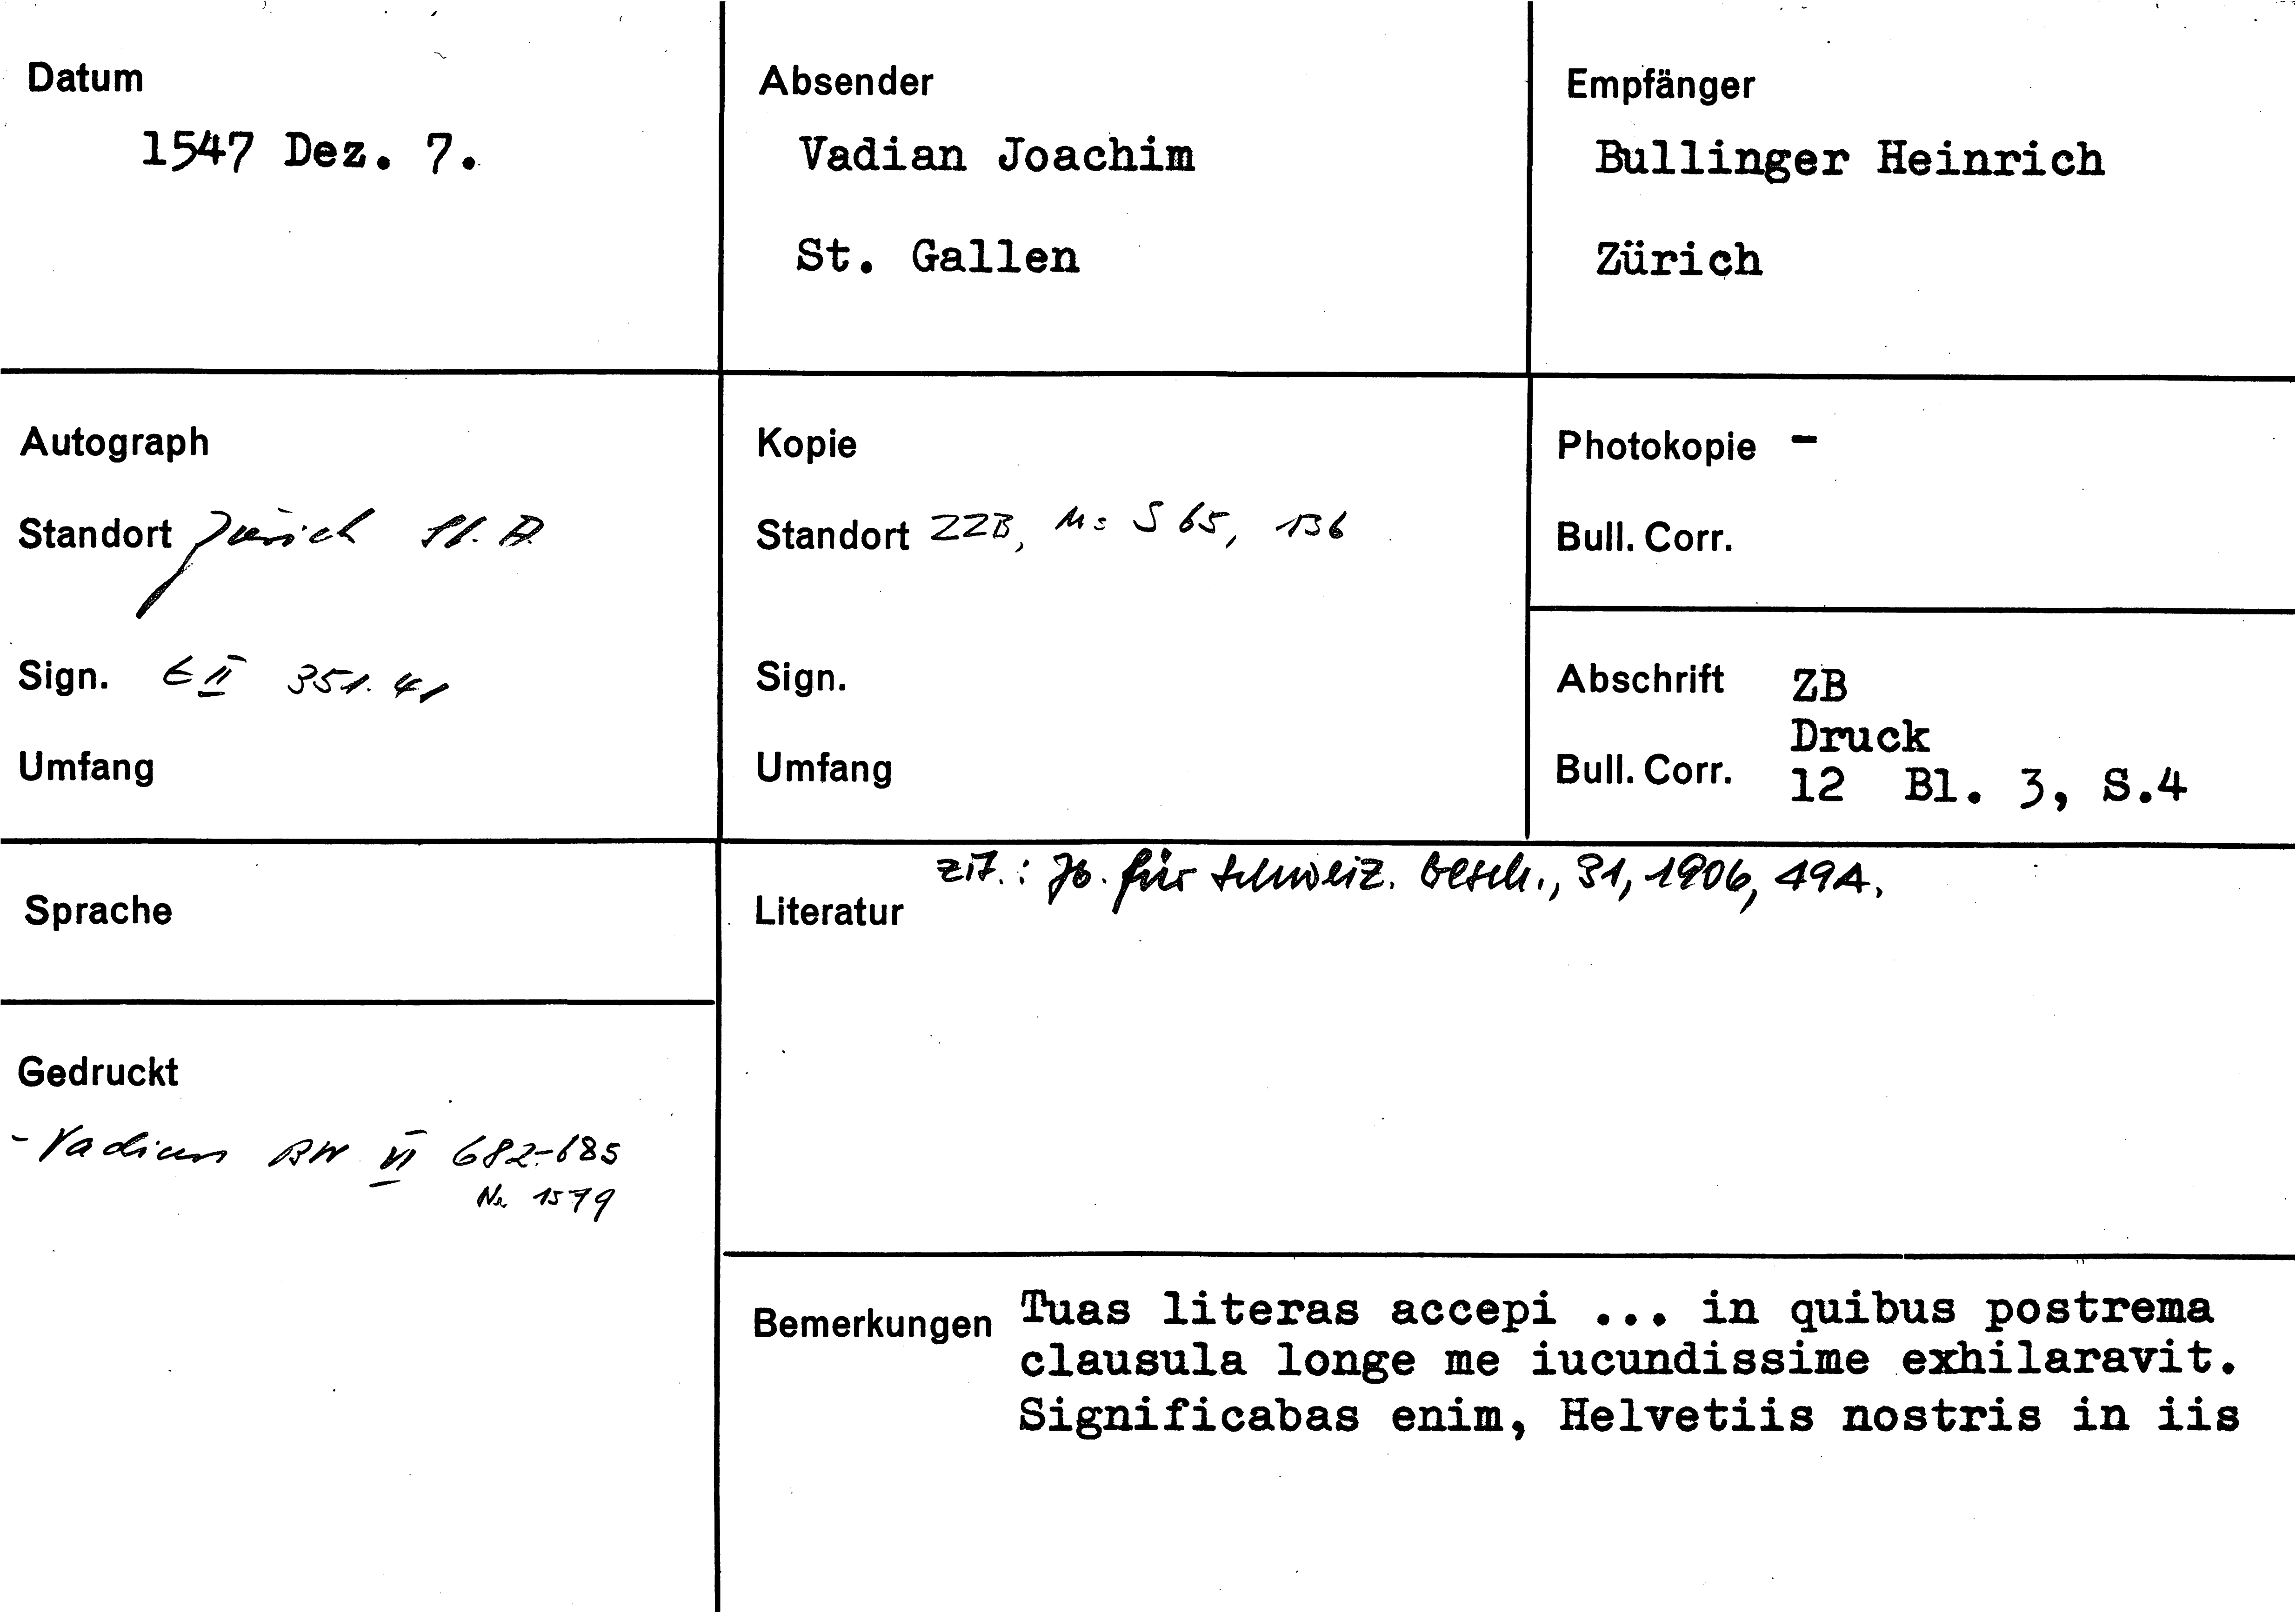 Datum
1547 Dez. 7.
Absender
Vadian Joachim
St. Gallen
Empfänger
Bullinger Heinrich
Zürich
Autograph
Standort Zürich St. A.
Sign. E II 351. 41
Umfang
Kopie
Standort ZZB, Ms S 65, 136
Sign.
Umfang
Photokopie -
Bull. Corr.
Abschrift ZB
Druck
Bull. Corr. 12 Bl. 3, S.4
Sprache
Gedruckt
- Vadian BW VI 682-685
Nr. 1579
zit.: Jb. für Schweiz. Gesch., 31, 1906, 49A.
Literatur
Bemerkungen Tuas literas accepi ... in quibus postrema
clausula longe me iucundissime exhilaravit.
Significabas enim, Helvetiis nostris in iis